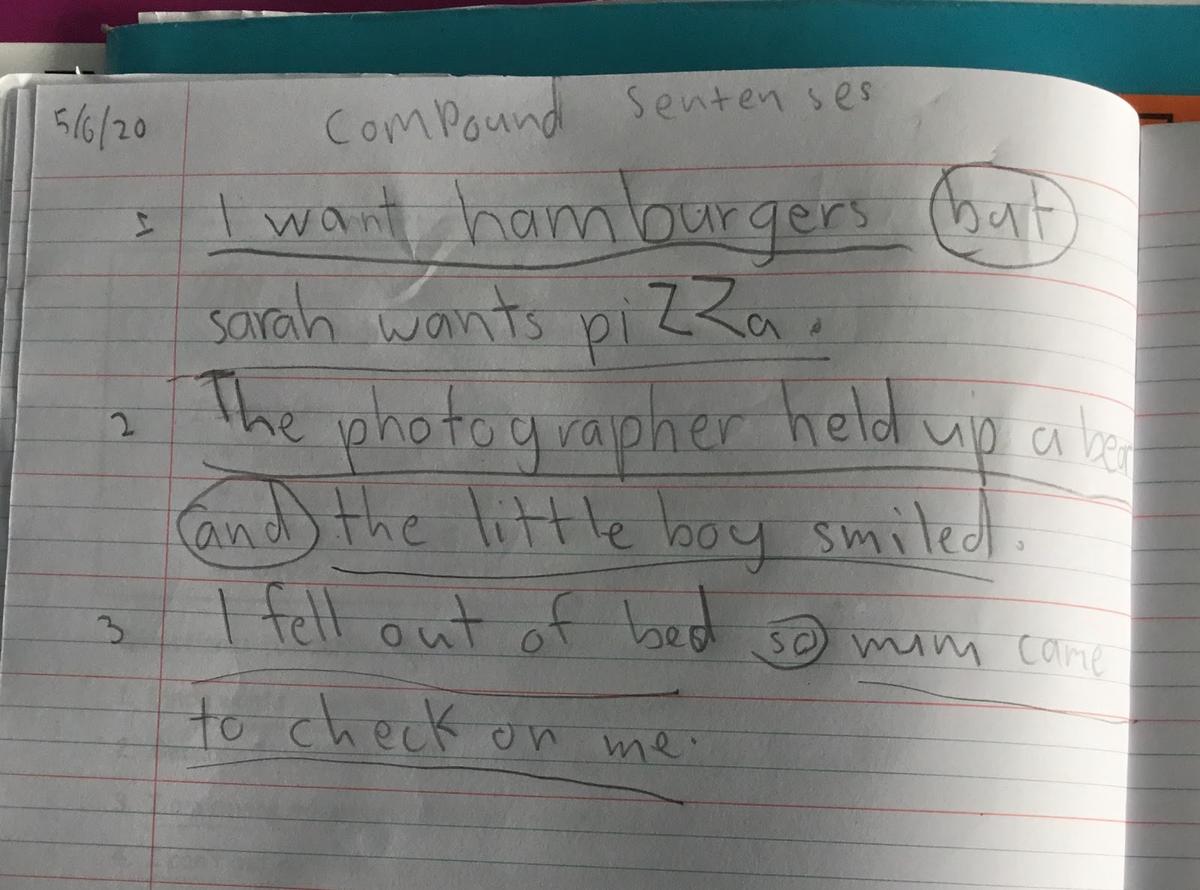 5/6/20 Compound Sentenses
1 I want hamburgers but
sarah wants pizza.
2 The photographer held up a
and the little boy smiled.
3 I fell out of bed so mum came
to check on me.